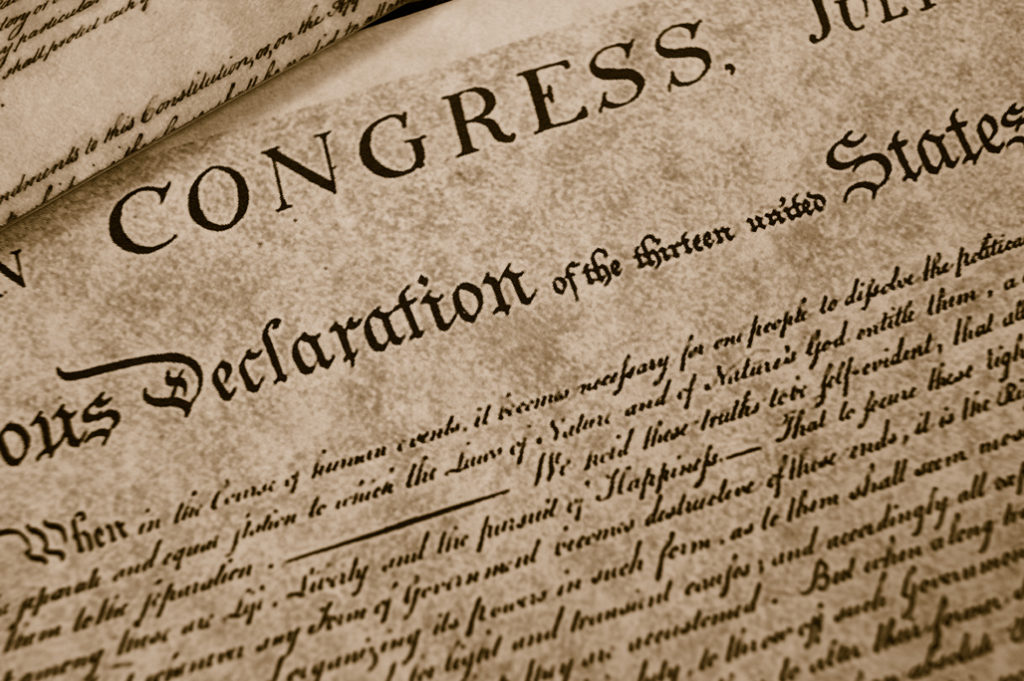 shall protect each of
ndments to this Constitution, or, on the App
N CONGRESS, JULY
ous Declaration of the thirteen united States
When in the Course of human events, it becomes necessary for one people to dissolve the political
separate and equal station to which the Laws of Nature and of Nature's God entitle them, a
them to the separation. We hold these truths to be self-evident, that all
among these are Life, Liberty and the pursuit of Happiness.— That to secure these right
whenever any Form of Government becomes destructive of these ends, it is the Ri
organizing its powers in such form, as to them shall seem mos
for light and transient causes; and accordingly all exp
they are accustomed. But when a long tra
duty, to throw off such Government
to alter their former
absolute